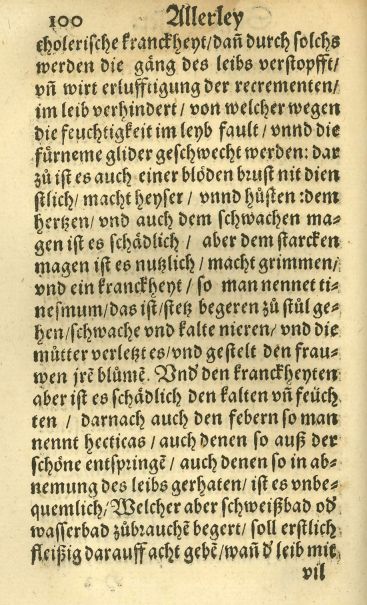 100 Allerley
cholerische kranckheyt/dañ durch solchs
werden die gäng des leibs verstopfft/
vñ wirt erlufftigung der recrementen/
im leib verhindert / von welcher wegen
die feuchtigkeit im leyb fault / vnnd die
fürneme glider geschwecht werden: dar
zů ist es auch einer blöden brust nit dien
stlich/ macht heyser / vnnd hůsten :dem
hertzen/ vnd auch dem schwachen ma⸗
gen ist es schädlich / aber dem starcken
magen ist es nutzlich / macht grimmen/
vnd ein kranckheyt / so man nennet ti⸗
nesmum/das ist/stetz begeren zů stůl ge⸗
hen/schwache vnd kalte nieren/ vnd die
můtter verletzt es/vnd gestelt den frau⸗
wen jrẽ blůmẽ. Vnd den kranckheyten
aber ist es schädlich den kalten vñ feüch
ten / darnach auch den febern so man
nennt hecticas / auch denen so auß der
schöne entspringẽ / auch denen so in ab⸗
nemung des leibs gerhaten/ ist es vnbe⸗
quemlich/Welcher aber schweißbad od̕
wasserbad zůbrauchẽ begert/ soll erstlich
fleißig darauff acht gebẽ/wañ d̕ leib mit
vil